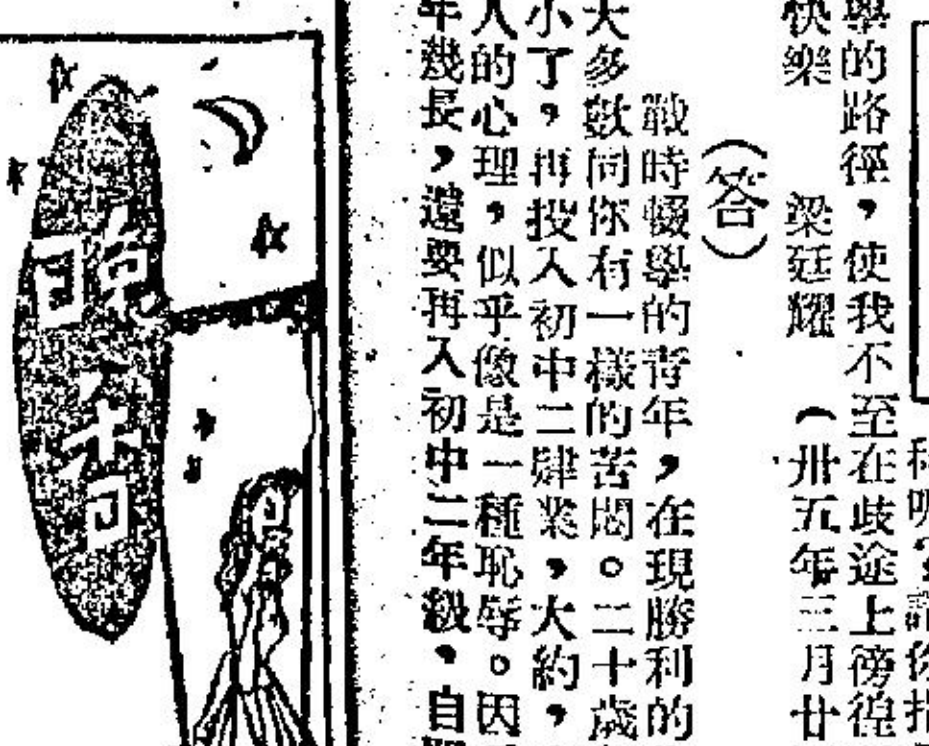 學的路徑，使我不至在歧途上徬徨
快樂　　梁廷耀　（卅五年三月廿
（答）
戰時輟學的青年，在現勝利的
大多數同你有一樣的苦悶。二十歲
小了，再投入初中二肄業，大約，
人的心理，似乎像是一種恥辱。因
年幾長，還要再入初中二年級，自
晚香